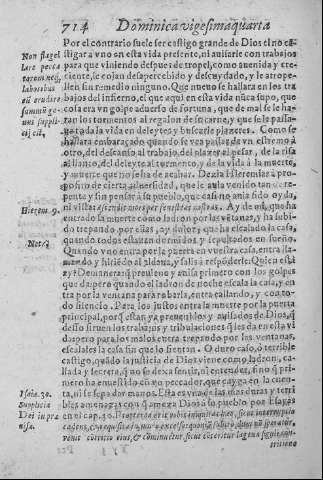 714 Dominica vigesimaquarta
Por el contrario suele ser castigo grande de Dios el no ca-
stigar a vno en esta vida presente, ni auisarle con trabajos
para que viniendo despues de tropel, como auenida y cre-
ciente, le cojan desapercebido y descuydado, y le atrope-
llen sin remedio ninguno. Que nueuo se hallara en los tra
bajos del infierno, el que aqui en esta vida nũca supo, que
cosa era vn golpe aduerso de fortuna, que de mal se le ha-
ran los tormentos al regalon de su carne, y que se le passa-
ua toda la vida en deleytes y buscarle plazeres. Como se
hallara embaraçado quando se vea passar de vn estremo à
otro, del descanso al trabajo, del plazer al pesar, de la risa
al llanto, del deleyte al tormento, y de la vida à la muerte,
y muerte que no se ha de acabar. Dezia Ieremias à pro-
posito de cierta aduersidad, que le auia venido tan de re-
pente y sin pensar à su pueblo, que casi no auia sido oyda,
ni vista: Ascendit mors per fenestras nostras. Ay de mi, que ha
entrado la muerte como ladron por las vẽtanas, y ha subi-
do trepando por ellas, ay dolor, que ha escalado la casa,
quando todos estauan dormidos y sepultados en sueño.
Quando vno entra por la puerta en vuestra casa, entra lla-
mando y hiriẽdo el aldaua, y salis à respõderle: Quien està
ay? De manera q̃ preuiene y auisa primero con los golpes
que da: pero quando el ladron de noche escala la casa, y en
tra por la ventana para robarla, entra callando, y con to-
do silencio. Para los justos entra la muerte por la puerta
principal, porq̃ estan ya preuenidos y auisados de Dios, q̃
desso siruen los trabajos y tribulaciones q̃ les da en esta vi
da: pero para los malos entra trepando por las ventanas,
escalales la casa sin que lo sientan. O duro caso, ò terrible
castigo, quãdo la justicia de Dios viene como ladron, ca-
llada y secreta, q̃ no se dexa sentir, ni entender, sino q̃ pri-
mero ha embestido en el peccador, que cayga en la cuen-
ta, ni se sepa dar manos. Esta es vna de las mas duras y terri
bles amenazas con q̃ amenaza Dios à su pueblo por Esayas
en el cap. 30. Propterea erit vobis iniquitas hæc, sicut interruptio
cadens, & requisita in muro excelso, quoniam subitò, dum non speratur,
veniet contritio eius, & comminuetur sicut conteritur lagena figuli, con-
tritione
Non flagel
lare pecca
Hierem. 9.
Nota.
Isaiæ. 30.